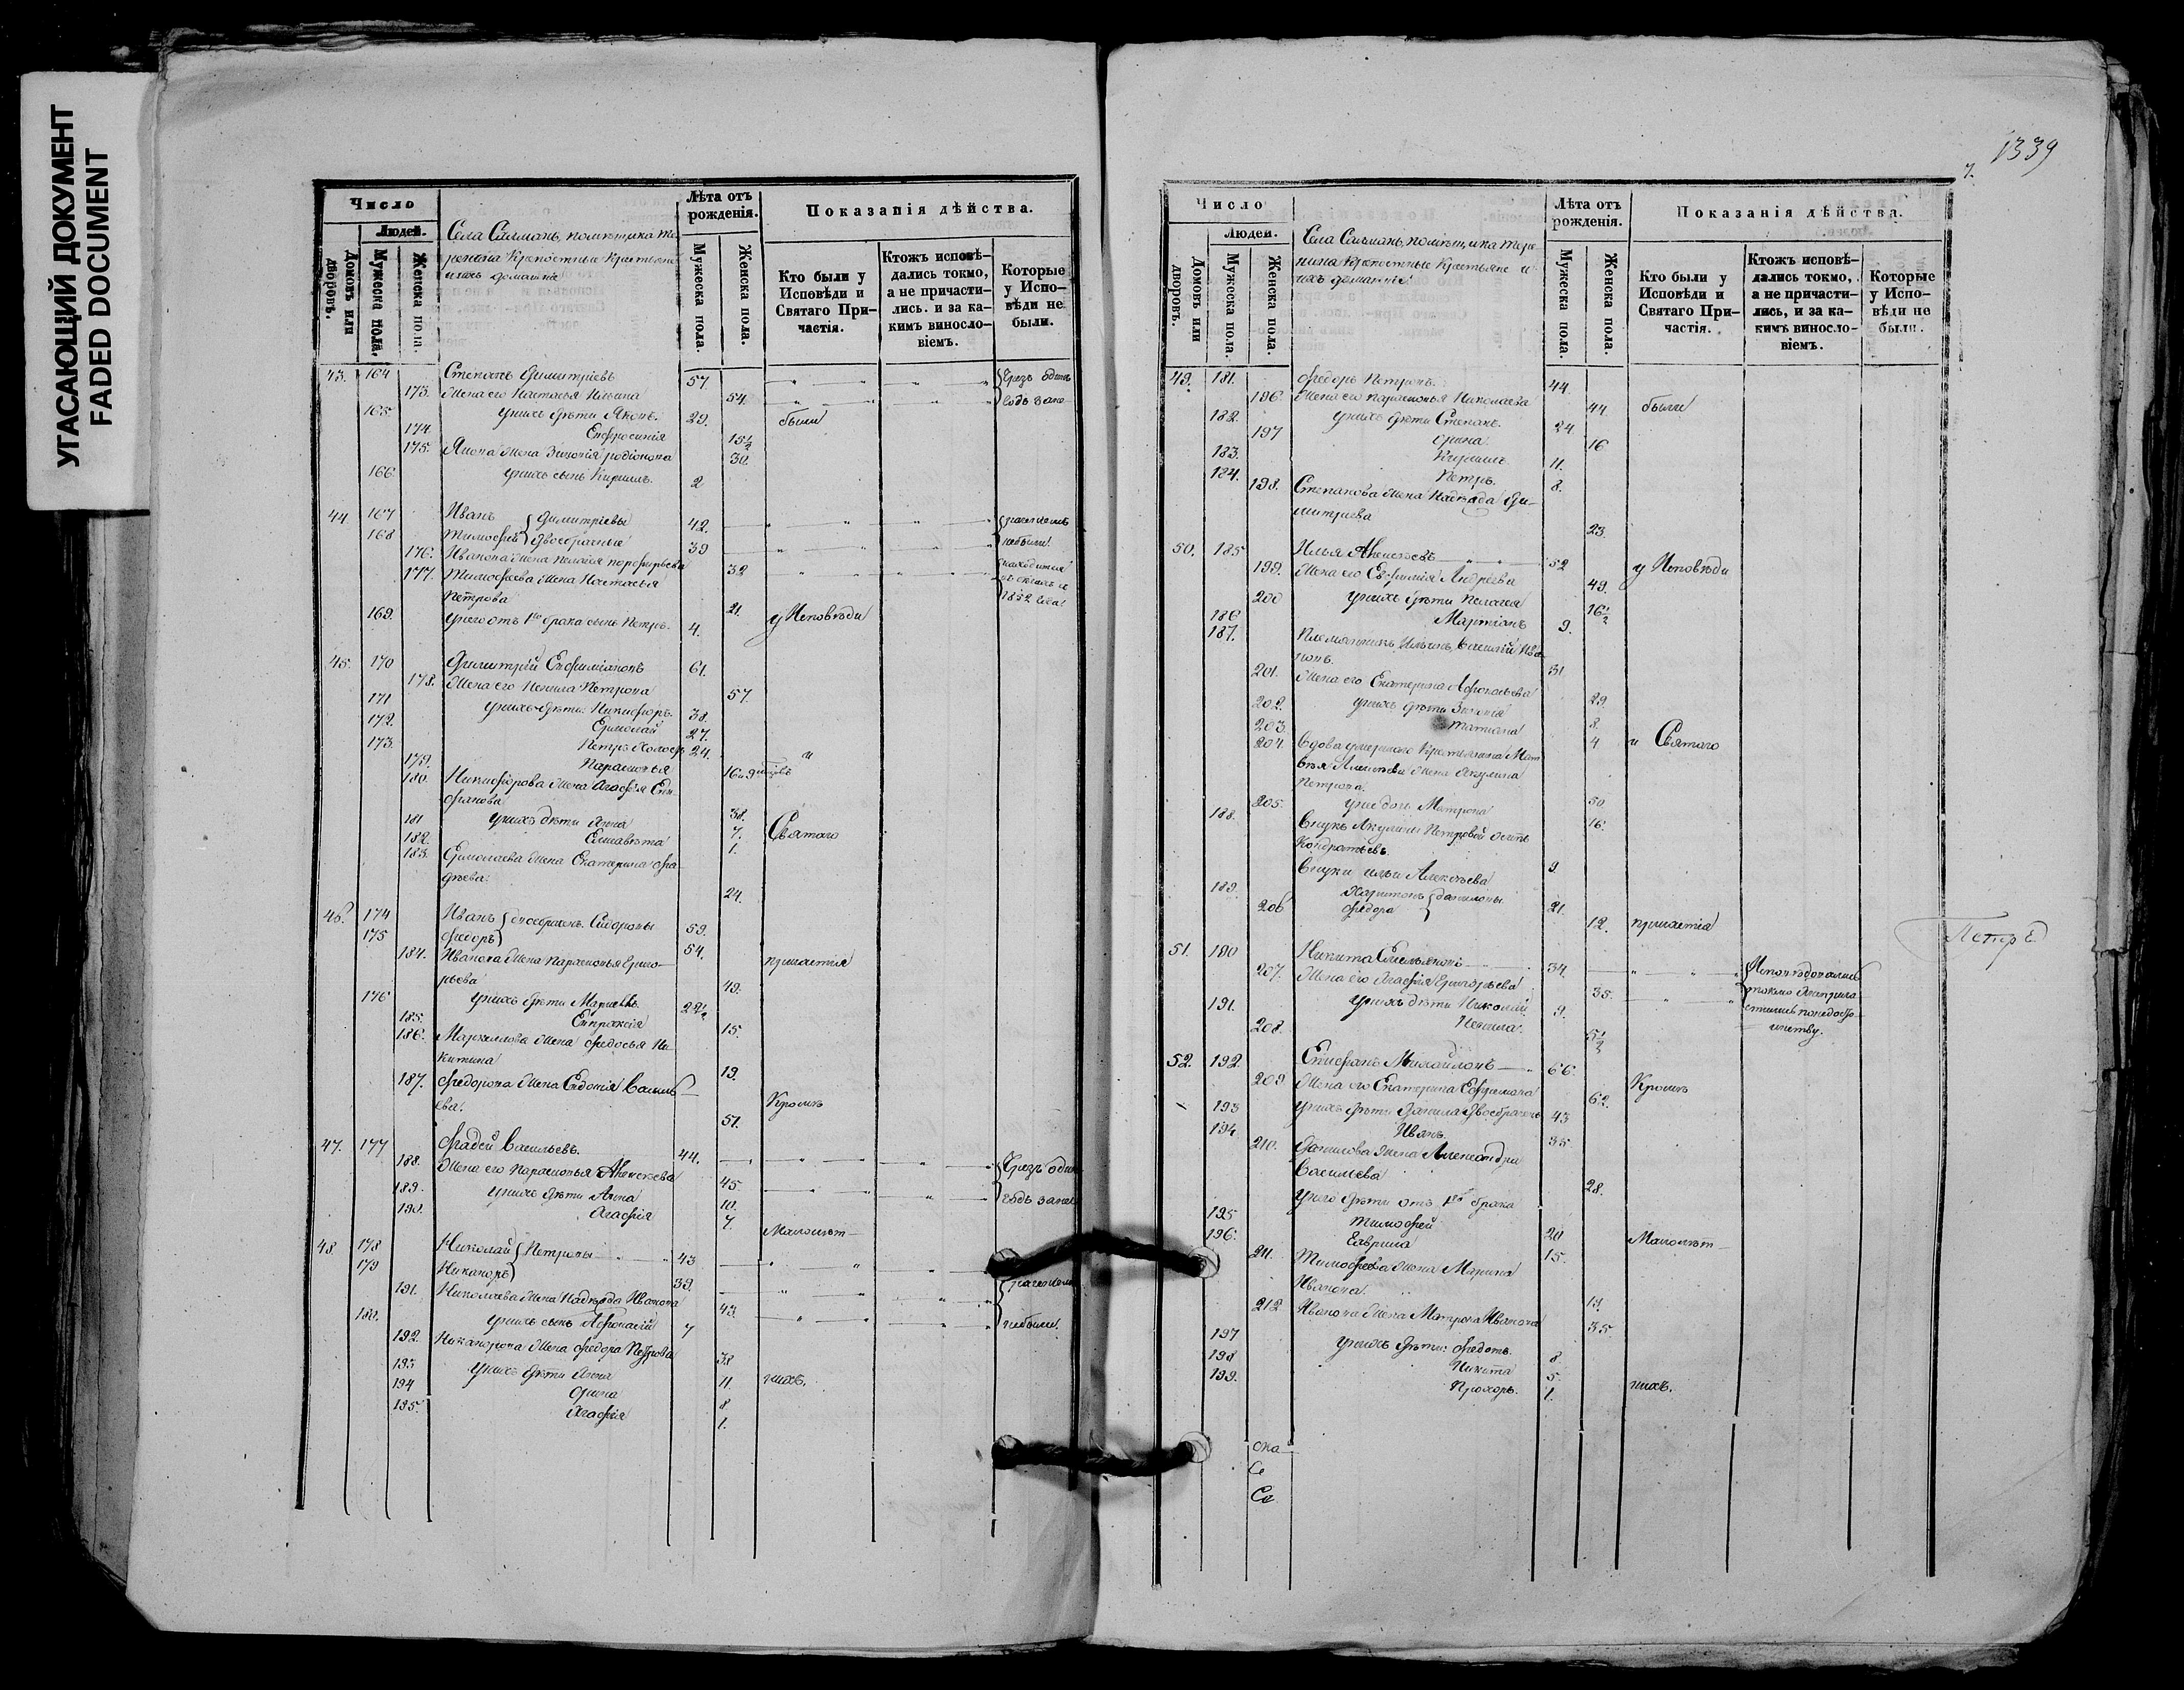 УГАСАЮЩИЙ ДОКУМЕНТ
FADED DOCUMENT
Число
Людей.
Домовъ или дворовъ.
Мужеска пола.
Женска пола.
Села Салмановъ, помѣщика
крѣпостные крестьяне
и ихъ домашніе
Лѣта отъ рожденія.
Мужеска пола.
Женска пола.
Показанія дѣйства.
Кто были у Исповѣди и Святаго Причастія.
Ктожъ исповѣдались токмо, а не причастились. и за какимъ винословіемъ.
Которые у Исповѣди не были.
43. 164 Степанъ Димитріевъ 57.
173. Жена его Настасья Ильина 54.
165. у нихъ дѣти Яковъ. 29. были
174. Евфросинія 15½
175. Якова жена Зиновія Родіонова 30.
166. у нихъ сынъ Кириллъ. 2
44. 167 Иванъ Димитріевы 42.
168 Тимофей двоебрачные 39
176. Иванова жена Пелагія Порфирьева 32
177. Тимофеева жена Настасья
Петрова 21.
169. у него отъ 1го брака сынъ Петръ. 4. у Исповѣди
45. 170 Димитрій Евфиміановъ 61.
178. Жена его Ненила Петрова 57.
171 у нихъ дѣти: Никифоръ. 38.
172. Ермолай 27.
173. Петръ Холостъ 24. и
179. Парасковья 16 и 9 мѣсяцовъ
180. Никифорова жена Агафія
181 у нихъ дѣти Анна 7.
182. Елисавета 1.
Святаго
183. Ермолаева жена Екатерина
24.
46. 174 Иванъ двоебрачн. Сидоровы 59.
175 Федоръ 54.
184. Иванова жена Парасковья Григо-
рьева 49.
причастія
176 у нихъ дѣти 22½
185. Евпраксія 15.
186. жена Федосья Ни-
китина 19.
187. Федорова жена Евдокія Василь-
ева. 51.
Кромѣ
47. 177 Фадей Васильевъ. 44.
188. Жена его Парасковья Алексѣева 45
189. у нихъ дѣти Анна 10.
190. Агафія 7.
Малолѣт-
48. 178 Николай Петровы 43
179 Никаноръ 39.
191. Николаева жена Надежда Иванова 43.
180. у нихъ сынъ Афанасій 7
192. Никанорова жена Федора Петрова 38
193 у нихъ дѣти Анна 11. нихъ.
194 Орина 8
195. Агафія 1.
7.
1339
Число
Людей.
Домовъ или дворовъ.
Мужеска пола.
Женска пола.
Села Салмановъ, помѣщика
крѣпостные крестьяне и
ихъ домашніе
Лѣта отъ рожденія.
Мужеска пола.
Женска пола.
Показанія дѣйства.
Кто были у Исповѣди и Святаго Причастія.
Ктожъ исповѣдались токмо, а не причастились, и за какимъ винословіемъ.
Которые у Исповѣди не были.
49. 181. Федоръ Петровъ. 44.
196. Жена его Парасковья Николаева 44. были
182. у нихъ дѣти Степанъ. 24
197 Орина. 16
183. Кириллъ. 11.
184. Петръ. 8.
198. Степанова жена Надежда Ди-
митріева 23.
50. 185 Илья Алексѣевъ 52
199. Жена его Евфимія Андреева 49. у Исповѣди
200 у нихъ дѣти Пелагея 16½
186 Мартіанъ 9.
187. Племянникъ Ильинъ, Василій Ива-
новъ. 31
201. Жена его Екатерина Афанасьева 29.
202. у нихъ дѣти Зиновія 8.
203. Татіана 4 и Святаго
204. Вдова умершаго крестьянина Мат-
вѣя Алексѣева жена Акулина
Петрова. 50
205. у нее дочь Матрона 16.
188. Внукъ Акулины Петровой Осипъ
Кондратьевъ. 9.
Внуки Ильи Алексѣева
189. Харитонъ 21.
206 Федора 12. причастія
Петръ
51. 190 Никита Емельяновъ 34.
207. Жена его Агафія Григорьева 35.
191. у нихъ дѣти Николай. 9.
208. Ненила. 5½
Исповѣдовались
токмо
52. 192. Епифанъ Михайловъ 66.
209. Жена его Екатерина Ефремова 62. Кромѣ
193 у нихъ дѣти Данила двоебраченъ 43
194 Иванъ. 35
210. Данилова жена Александра
Васильева 28.
у него дѣти отъ 1го брака
195 Тимофей 20
196. Гаврила 15.
Малолѣт-
211. Тимофеева жена Марина
Иванова. 19.
212 Иванова жена Матрона Иванова 35
197 у нихъ дѣти: Федотъ. 8
198 Никита 5.
199. Прохоръ. 1. нихъ.